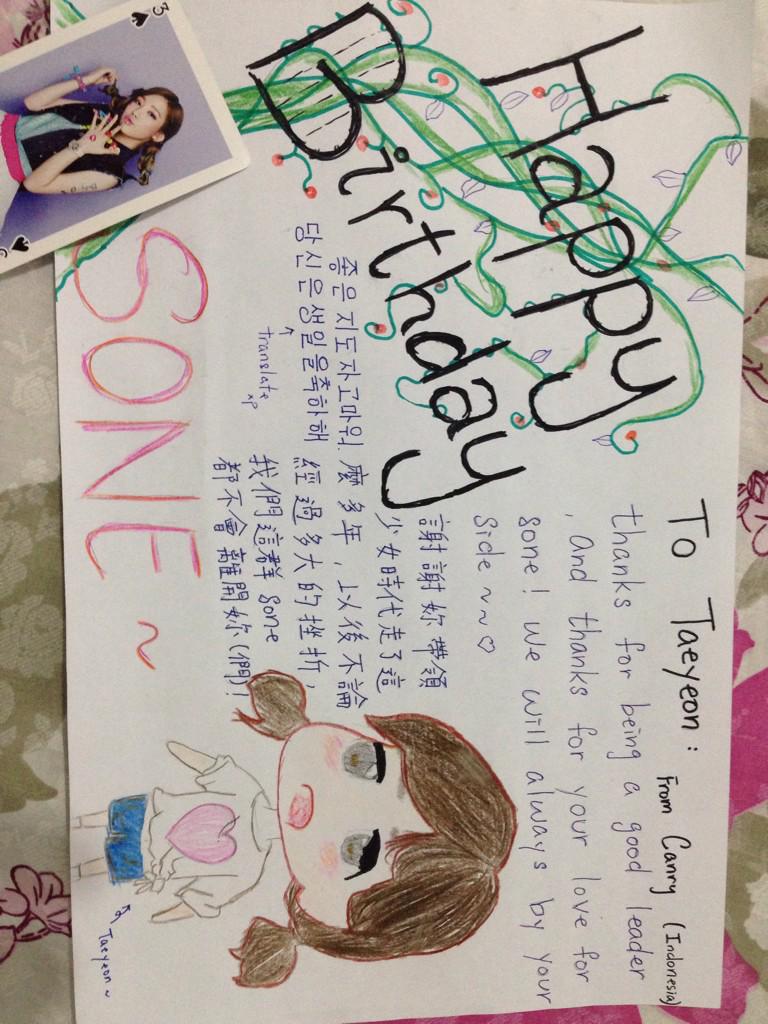 Happy
Birthday
To Taeyeon:
From Canry (Indonesia)
thanks for being a good leader
, and thanks for your love for
sone! We will always by your
side ~~♡
좋은 지도자고마워.
당신은생일을축하해
translate xp
謝謝妳帶領
少女時代走了這
麼多年,以後不論
經過多大的挫折,
我們這群sone
都不會離開妳(們)!
SONE ~
Taeyeon~
3